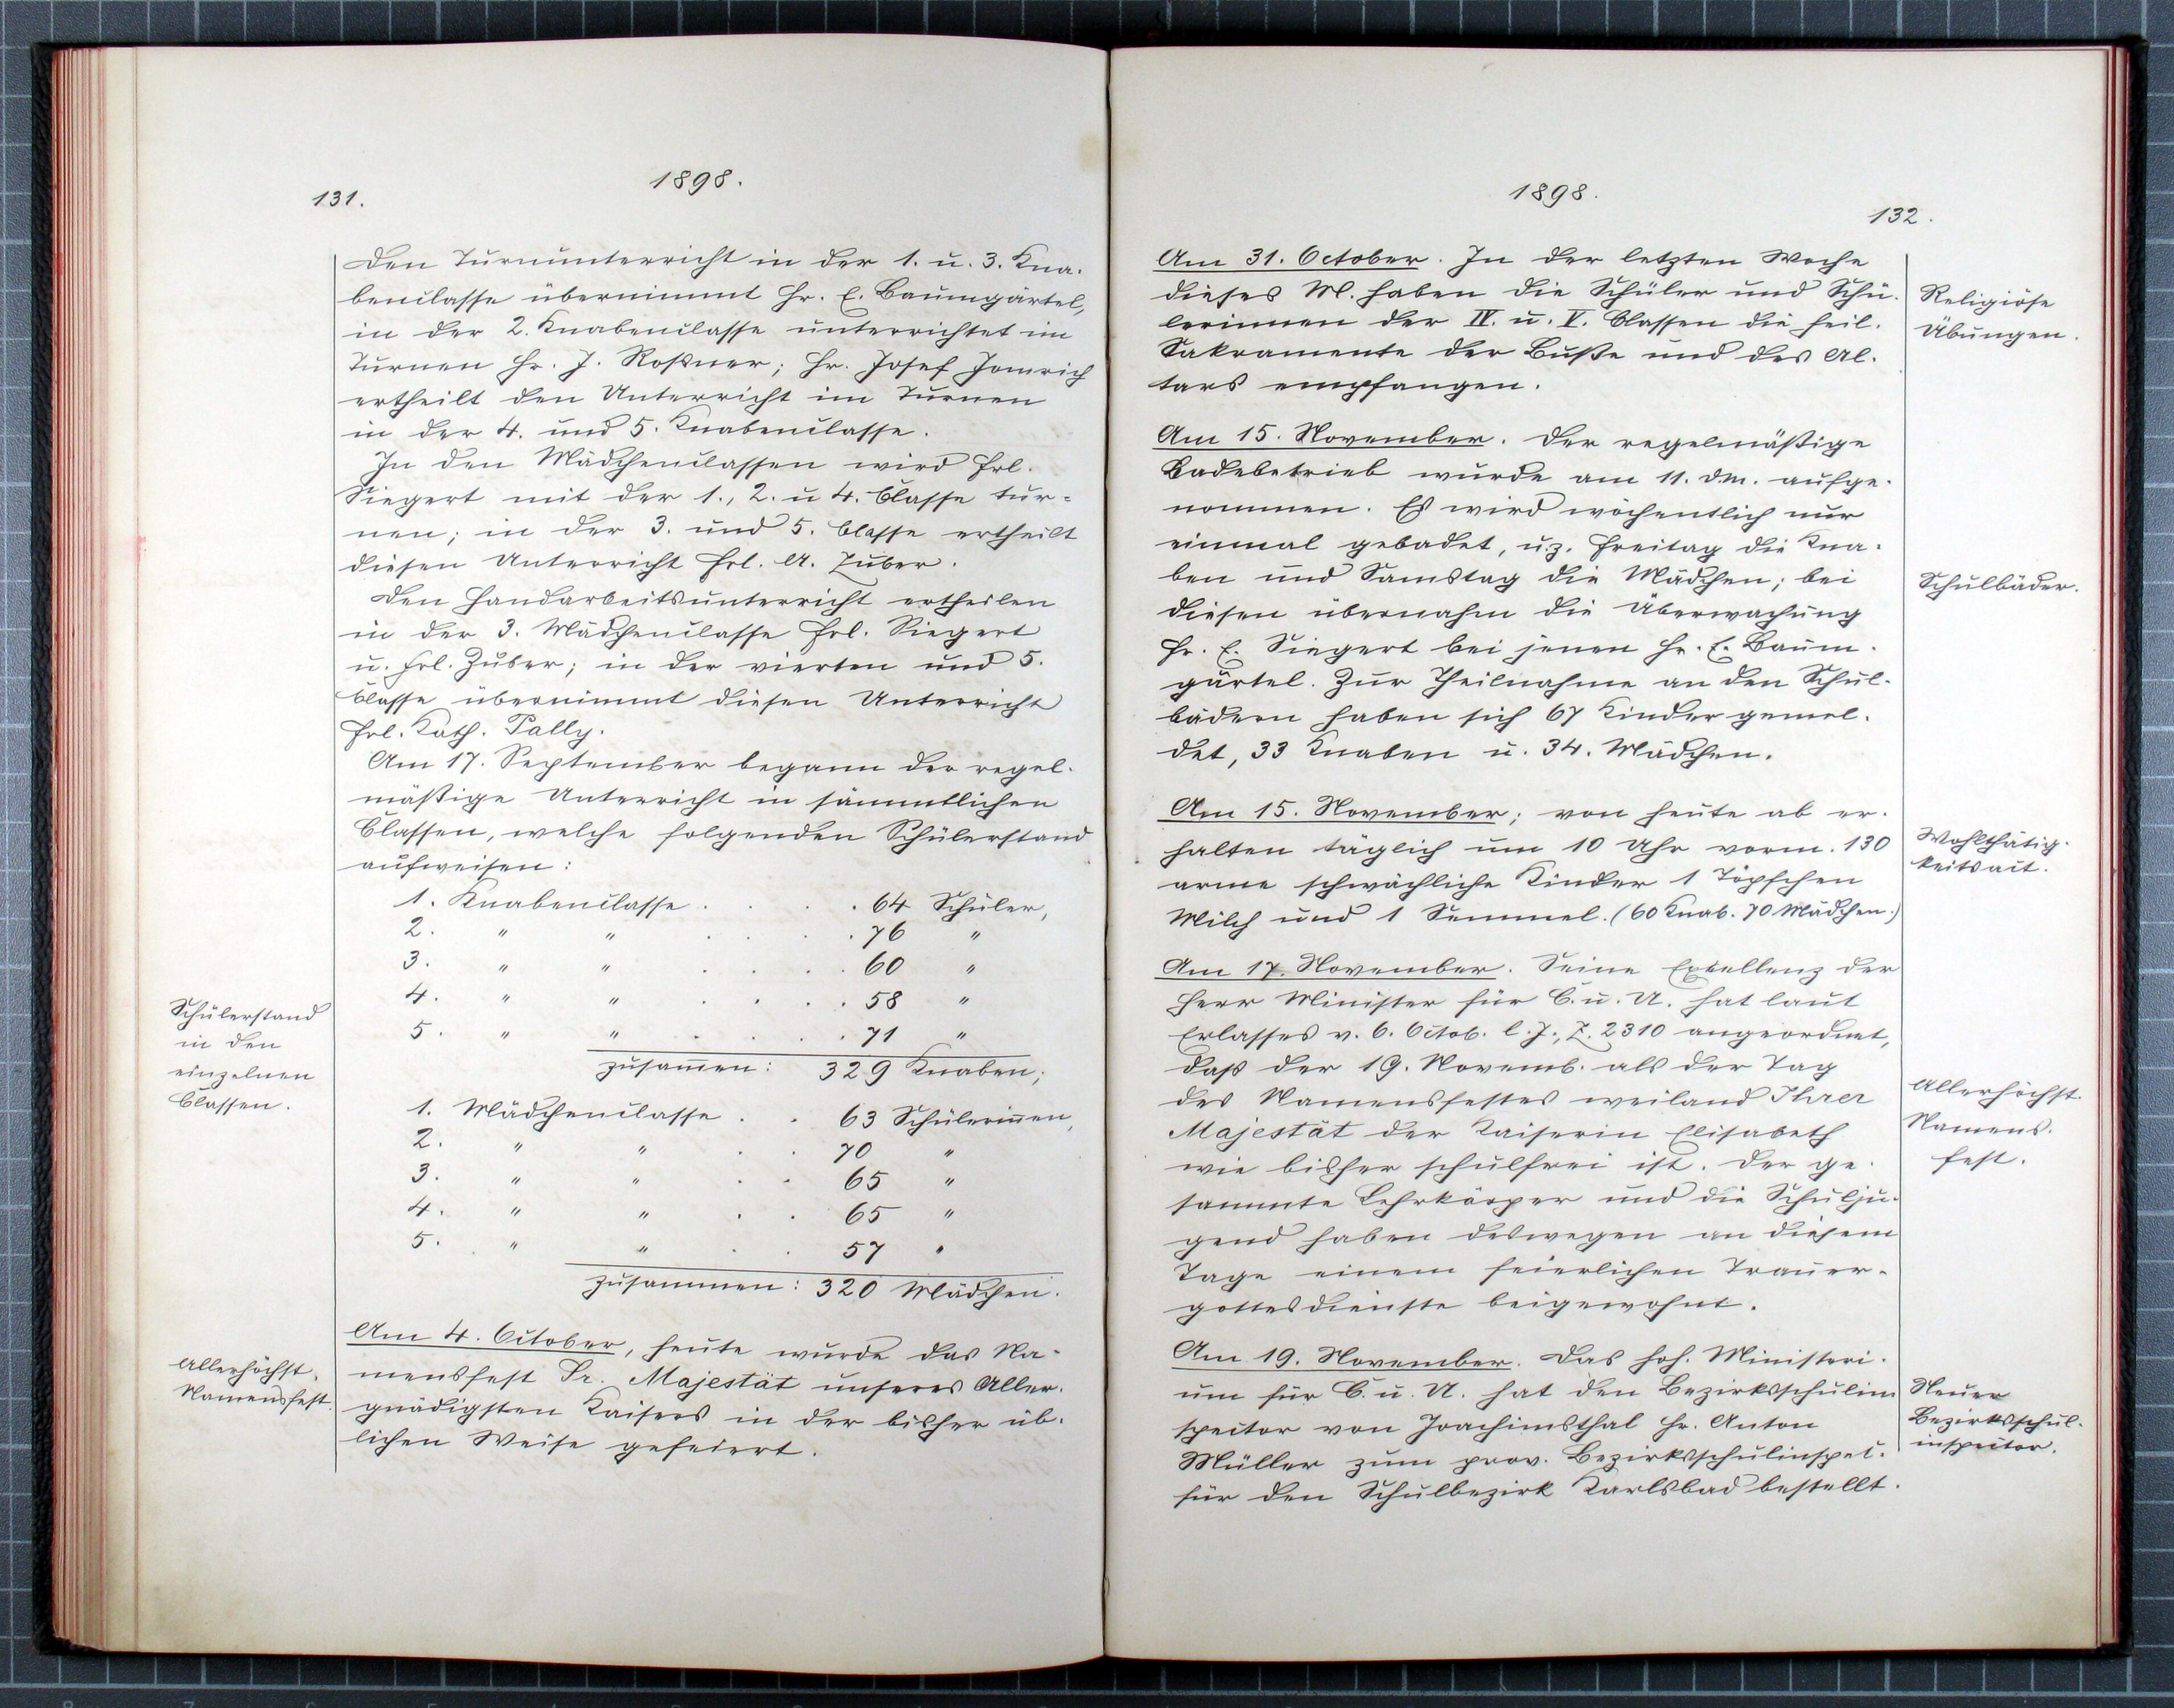 131.
1898.
Den Turnunterricht in der 1. u. 3. Kna-
benclasse übernimmt Hr. E. Baumgärtel,
in der 2. Knabenclasse unterrichtet im
Turnen Hr. J. Roßner; Hr. Josef Jomrich
ertheilt den Unterricht im Turnen
in der 4. und 5. Knabenclasse.
In den Mädchenclassen wird Frl.
Siegert mit der 1., 2. u 4. Classe tur=
nen; in der 3. und 5. Classe ertheilt
diesen Unterricht Frl. A. Zuber.
Den Handarbeitsunterricht ertheilen
in der 3. Mädchenclasse Frl. Siegert
u. Frl. Zuber; in der vierten und 5.
Classe übernimmt diesen Unterricht
Frl. Kath. Pally.
Am 17. September begann der regel-
mäßige Unterricht in sämmtlichen
Classen, welche folgenden Schülerstand
aufweisen:
1. Knabenclasse . . . . 64 Schüler,
2. " " . . . . 76 "
3. " " . . . . 60 "
4. " " . . . . 58 "
5. " " . . . . 71 "
zusam̄en: 329 Knaben;
Schülerstand
in den
einzelnen
Classen.
1. Mädchenclasse . . 63 Schülerin̄en,
2. " " . . 70 "
3. " " . . 65 "
4. " " . . 65 "
5. " " . . 57 "
zusammen: 320 Mädchen.
Am 4. October, heute wurde das Na-
mensfest Sr. Majestät unseres Aller-
gnädigsten Kaisers in der bisher üb-
lichen Weise gefeiert.
Allerhöchst.
Namensfest.
1898.
132.
Am 31. October. In der letzten Woche
dieses M. haben die Schüler und Schü-
lerinnen der IV. u. V. Classen die heil.
Sakramente der Buße und des Al-
tars empfangen.
Religiöse
Übungen.
Am 15. November. Der regelmäßige
Badebetrieb wurde am 11. dM. aufge-
nommen. Es wird wöchentlich nur
einmal gebadet, u.z. Freitag die Kna-
ben und Samstag die Mädchen; bei
diesen übernahm die Überwachung
Fr. E. Siegert bei jenen Hr. E. Baum-
gärtel. Zur Theilnahme an den Schul-
bädern haben sich 67 Kinder gemel-
det, 33 Knaben u. 34. Mädchen.
Schulbäder.
Am 15. November; von heute ab er-
halten täglich um 10 Uhr vorm. 130
arme schwächliche Kinder 1 Töpfchen
Milch und 1 Semmel. (60 Knab. 70 Mädchen.)
Wohlthätig-
keitsact.
Am 17. November. Seine Excellenz der
Herr Minister für C. u. U. hat laut
Erlasses v. 6. Octob. l. J., Z. 2310 angeordnet,
daß der 19. Novemb. als der Tag
des Namensfestes weiland Ihrer
Majestät der Kaiserin Elisabeth
wie bisher schulfrei ist. Der ge-
sammte Lehrkörper und die Schulju-
gend haben deswegen an diesem
Tage einem feierlichen Trauer-
gottesdienste beigewohnt.
Allerhöchst.
Namens-
fest.
Am 19. November. Das hoh. Ministeri-
um für C. u. U. hat den Bezirksschulin
spector von Joachimsthal Hr. Anton
Müller zum prov. Bezirksschulinspec.
für den Schulbezirk Karlsbad bestellt.
Neuer
Bezirksschul-
inspector.